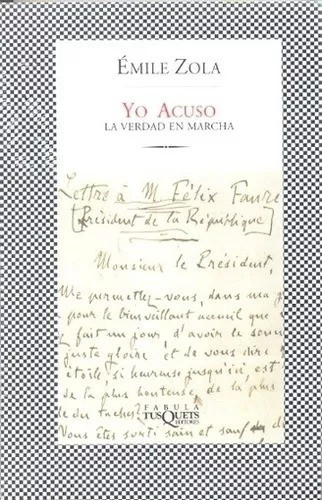 ÉMILE ZOLA
YO ACUSO
LA VERDAD EN MARCHA
Lettre à M. Félix Faure
(Président de la République)
Monsieur le Président,
Me permettez-vous, dans ma
pour le bienveillant accueil que
fait un jour, d'avoir le souci
juste gloire et de vous dire
étoile, si heureuse jusqu'ici, est
de la plus honteuse, de la plus
le des taches?
FÁBULA
TUSQUETS
EDITORES
Vous êtes sorti sain et sauf